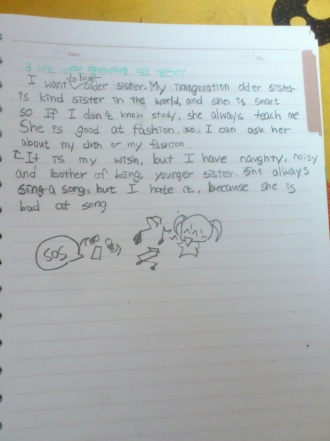 Date
No.
3.
to have
I want older sister. My imagination older sister
is kind sister in the world, and she is smart
so If I don't know study, she always teach me
She is good at fashion. so. I can ask her
about my cloth or my fashion
It is my wish, but I have naughty, noisy
and bother of being, younger sister. She always
sing a song, but I hate it, because she is
bad at song
SOS